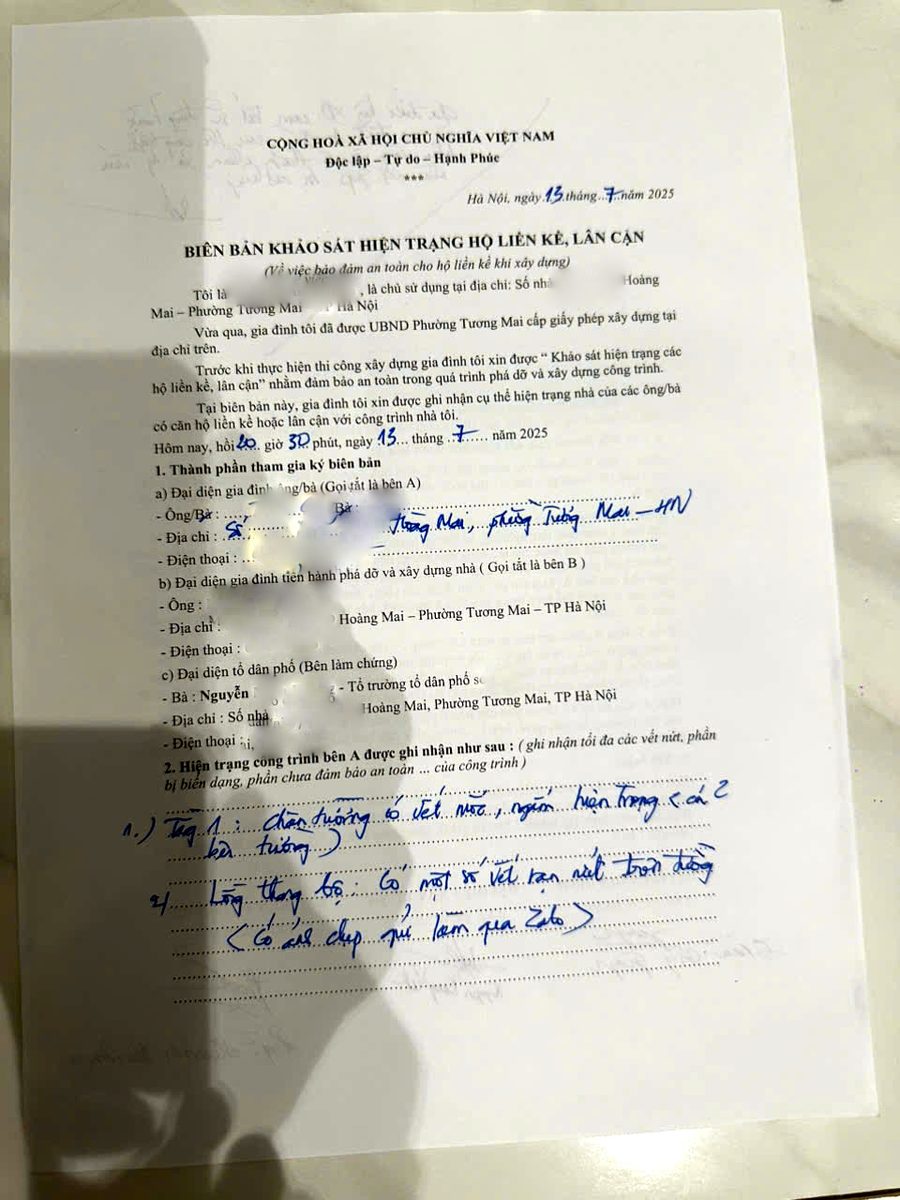 CỘNG HOÀ XÃ HỘI CHỦ NGHĨA VIỆT NAM
Độc lập – Tự do – Hạnh Phúc
***
Hà Nội, ngày 13 tháng 7 năm 2025
BIÊN BẢN KHẢO SÁT HIỆN TRẠNG HỘ LIỀN KỀ, LÂN CẬN
(Về việc bảo đảm an toàn cho hộ liền kề khi xây dựng)
Tôi là , là chủ sử dụng tại địa chỉ: Số nhà Hoàng
Mai – Phường Tương Mai TP Hà Nội
Vừa qua, gia đình tôi đã được UBND Phường Tương Mai cấp giấy phép xây dựng tại
địa chỉ trên.
Trước khi thực hiện thi công xây dựng gia đình tôi xin được “ Khảo sát hiện trạng các
hộ liền kề, lân cận” nhằm đảm bảo an toàn trong quá trình phá dỡ và xây dựng công trình.
Tại biên bản này, gia đình tôi xin được ghi nhận cụ thể hiện trạng nhà của các ông/bà
có căn hộ liền kề hoặc lân cận với công trình nhà tôi.
Hôm nay, hồi 20 giờ 30 phút, ngày 13 tháng 7 năm 2025
1. Thành phần tham gia ký biên bản
a) Đại diện gia đình ông/bà (Gọi tắt là bên A)
- Ông/Bà : Bà :
- Địa chỉ : Số Hoàng Mai, phường Tương Mai – HN
- Điện thoại :
b) Đại diện gia đình tiến hành phá dỡ và xây dựng nhà ( Gọi tắt là bên B )
- Ông :
- Địa chỉ : Hoàng Mai – Phường Tương Mai – TP Hà Nội
- Điện thoại :
c) Đại diện tổ dân phố (Bên làm chứng)
- Bà : Nguyễn - Tổ trường tổ dân phố số
- Địa chỉ : Số nhà Hoàng Mai, Phường Tương Mai, TP Hà Nội
- Điện thoại :
2. Hiện trạng công trình bên A được ghi nhận như sau : ( ghi nhận tối đa các vết nứt, phần
bị biến dạng, phần chưa đảm bảo an toàn ... của công trình )
1.) Tầng 1 : Chân tường có vết mốc, ngấm hiện trạng (cả 2
bên tường)
2/ Lồng thang bộ : Có một số vết rạn nứt trên tường
(Có ảnh chụp gửi Lâm qua Zalo)